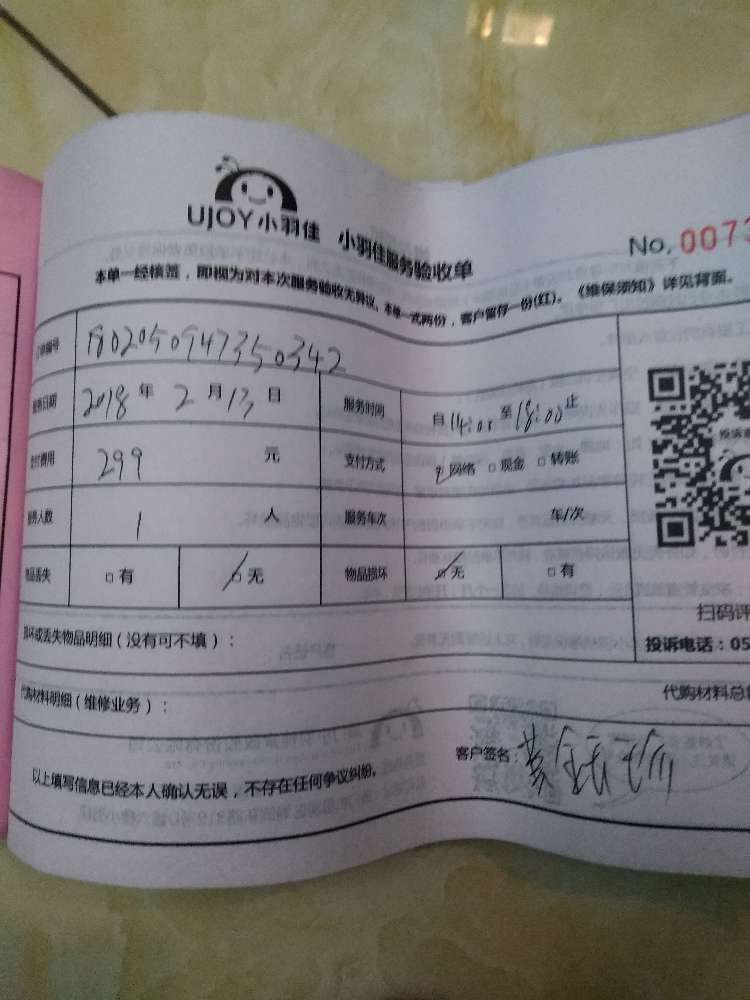 UJOY小羽佳 小羽佳服务验收单
No. 0073
本单一经核签，即视为对本次服务验收无异议。本单一式两份，客户留存一份(红)。《维保须知》详见背面。
订单编号 1802050947350342
服务日期 2018 年 2 月 13 日 服务时间 自 14:00 至 18:00 止
支付费用 299 元 支付方式 ☑网络 □现金 □转账
服务人数 1 人 服务车次 车/次
物品丢失 □有 ☑无 物品损坏 ☑无 □有
扫码评
损坏或丢失物品明细（没有可不填）：
投诉电话：05
代购材料明细（维修业务）：
代购材料总
以上填写信息已经本人确认无误，不存在任何争议纠纷。
客户签名：